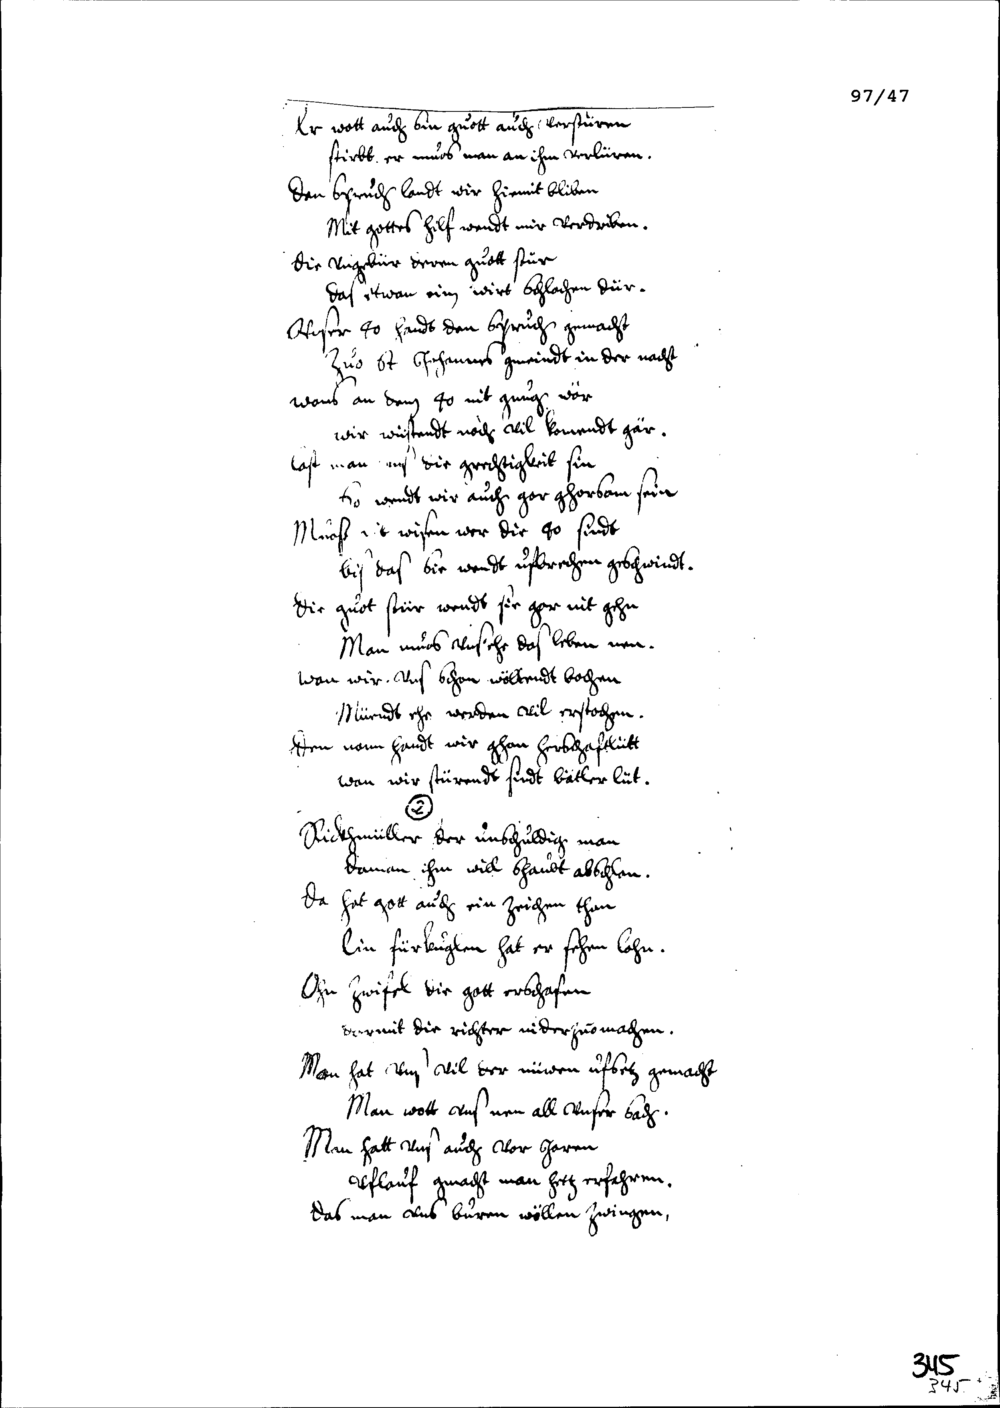 97/47
Er wott auch sin guott auch verstüren
stirbt er muos man an ihm verlüren.
Den spruch landt wir hiemit bliben
Mit gottes hilf wendt mir verdriben.
die ungebür deren guott stür
das etwan eim wirt schlachen dür.
Unser 40 handt den spruch gemacht
Zuo St Johannes gmeindt in der nacht
wans an dem 40 nit gnug wär
wir wüstendt noch vil komendt här.
last man uns die grechtigkeit sin
So wendt wir auch gar ghorsam sein
Muest nit wisen wer die 40 sindt
bis das sie wendt ufbrechen geschwindt.
die guot stür wendt sie gar nit gehn
Man muos uns ehe das leben nen.
wan wir uns schon wöltendt bochen
Müendt ehe werden vil erstochen.
Den nam handt wir ghan herschaftlütt
wan wir stürendt sindt bätler lüt.
2
Rickhmüller der unschuldig man
daman ihm will shaubt abschlan.
Da hat gott auch ein zeichen than
Ein fürkuglen hat er sehen lohn.
Ohn zwifel die gott erschafen
darmit die richter niderzuomachen.
Man hat uns vil der nüwen ufsetz gemacht
Man wott uns nen all unser sach.
Man hatt uns auch vor Jaren
Uflauf gmacht man hetz erfahren.
das man uns buren wöllen zwingen,
345
345